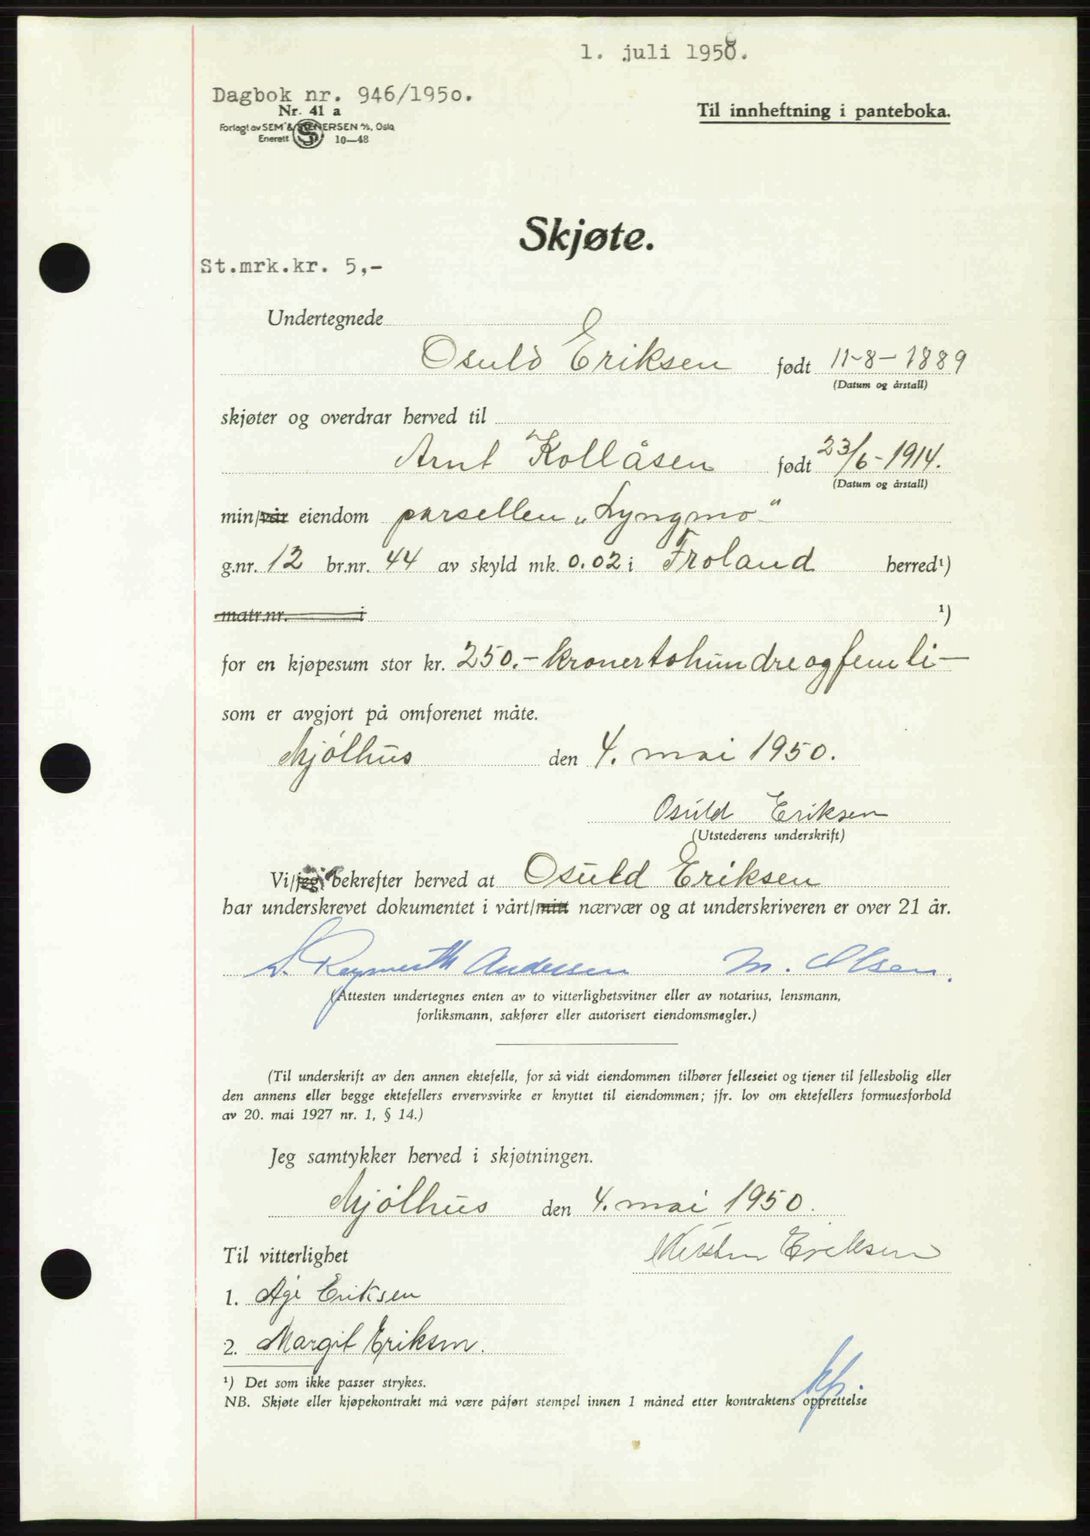 1. juli 1950.
Dagbok nr. 946/1950.
Nr. 41 a
Til innheftning i panteboka.
Forlagt av SEM & STENERSEN A/S, Oslo
Enerett 10—48
Skjøte.
St.mrk.kr. 5,-
Undertegnede
Osuld Eriksen født 11-8-1889
(Datum og årstall)
skjøter og overdrar herved til
Arnt Kollåsen født 23/6-1914.
(Datum og årstall)
min/vår eiendom parsellen „Lyngmo"
g.nr. 12 br.nr. 44 av skyld mk. 0.02 i Froland herred¹)
matr.nr. i ¹)
for en kjøpesum stor kr. 250.- kronertohundreogfemti—
som er avgjort på omforenet måte.
Mjölhus den 4. mai 1950.
Osuld Eriksen
(Utstederens underskrift)
Vi/jeg bekrefter herved at Osuld Eriksen
har underskrevet dokumentet i vårt/mitt nærvær og at underskriveren er over 21 år.
Andersen M. Olsen.
(Attesten undertegnes enten av to vitterlighetsvitner eller av notarius, lensmann,
forliksmann, sakfører eller autorisert eiendomsmegler.)
(Til underskrift av den annen ektefelle, for så vidt eiendommen tilhører felleseiet og tjener til fellesbolig eller
den annens eller begge ektefellers ervervsvirke er knyttet til eiendommen; jfr. lov om ektefellers formuesforhold
av 20. mai 1927 nr. 1, § 14.)
Jeg samtykker herved i skjøtningen.
Mjölhus den 4. mai 1950.
Til vitterlighet
Eriksen
1. Eriksen
2. Margit Eriksen.
¹) Det som ikke passer strykes.
NB. Skjøte eller kjøpekontrakt må være påført stempel innen 1 måned etter kontraktens opprettelse